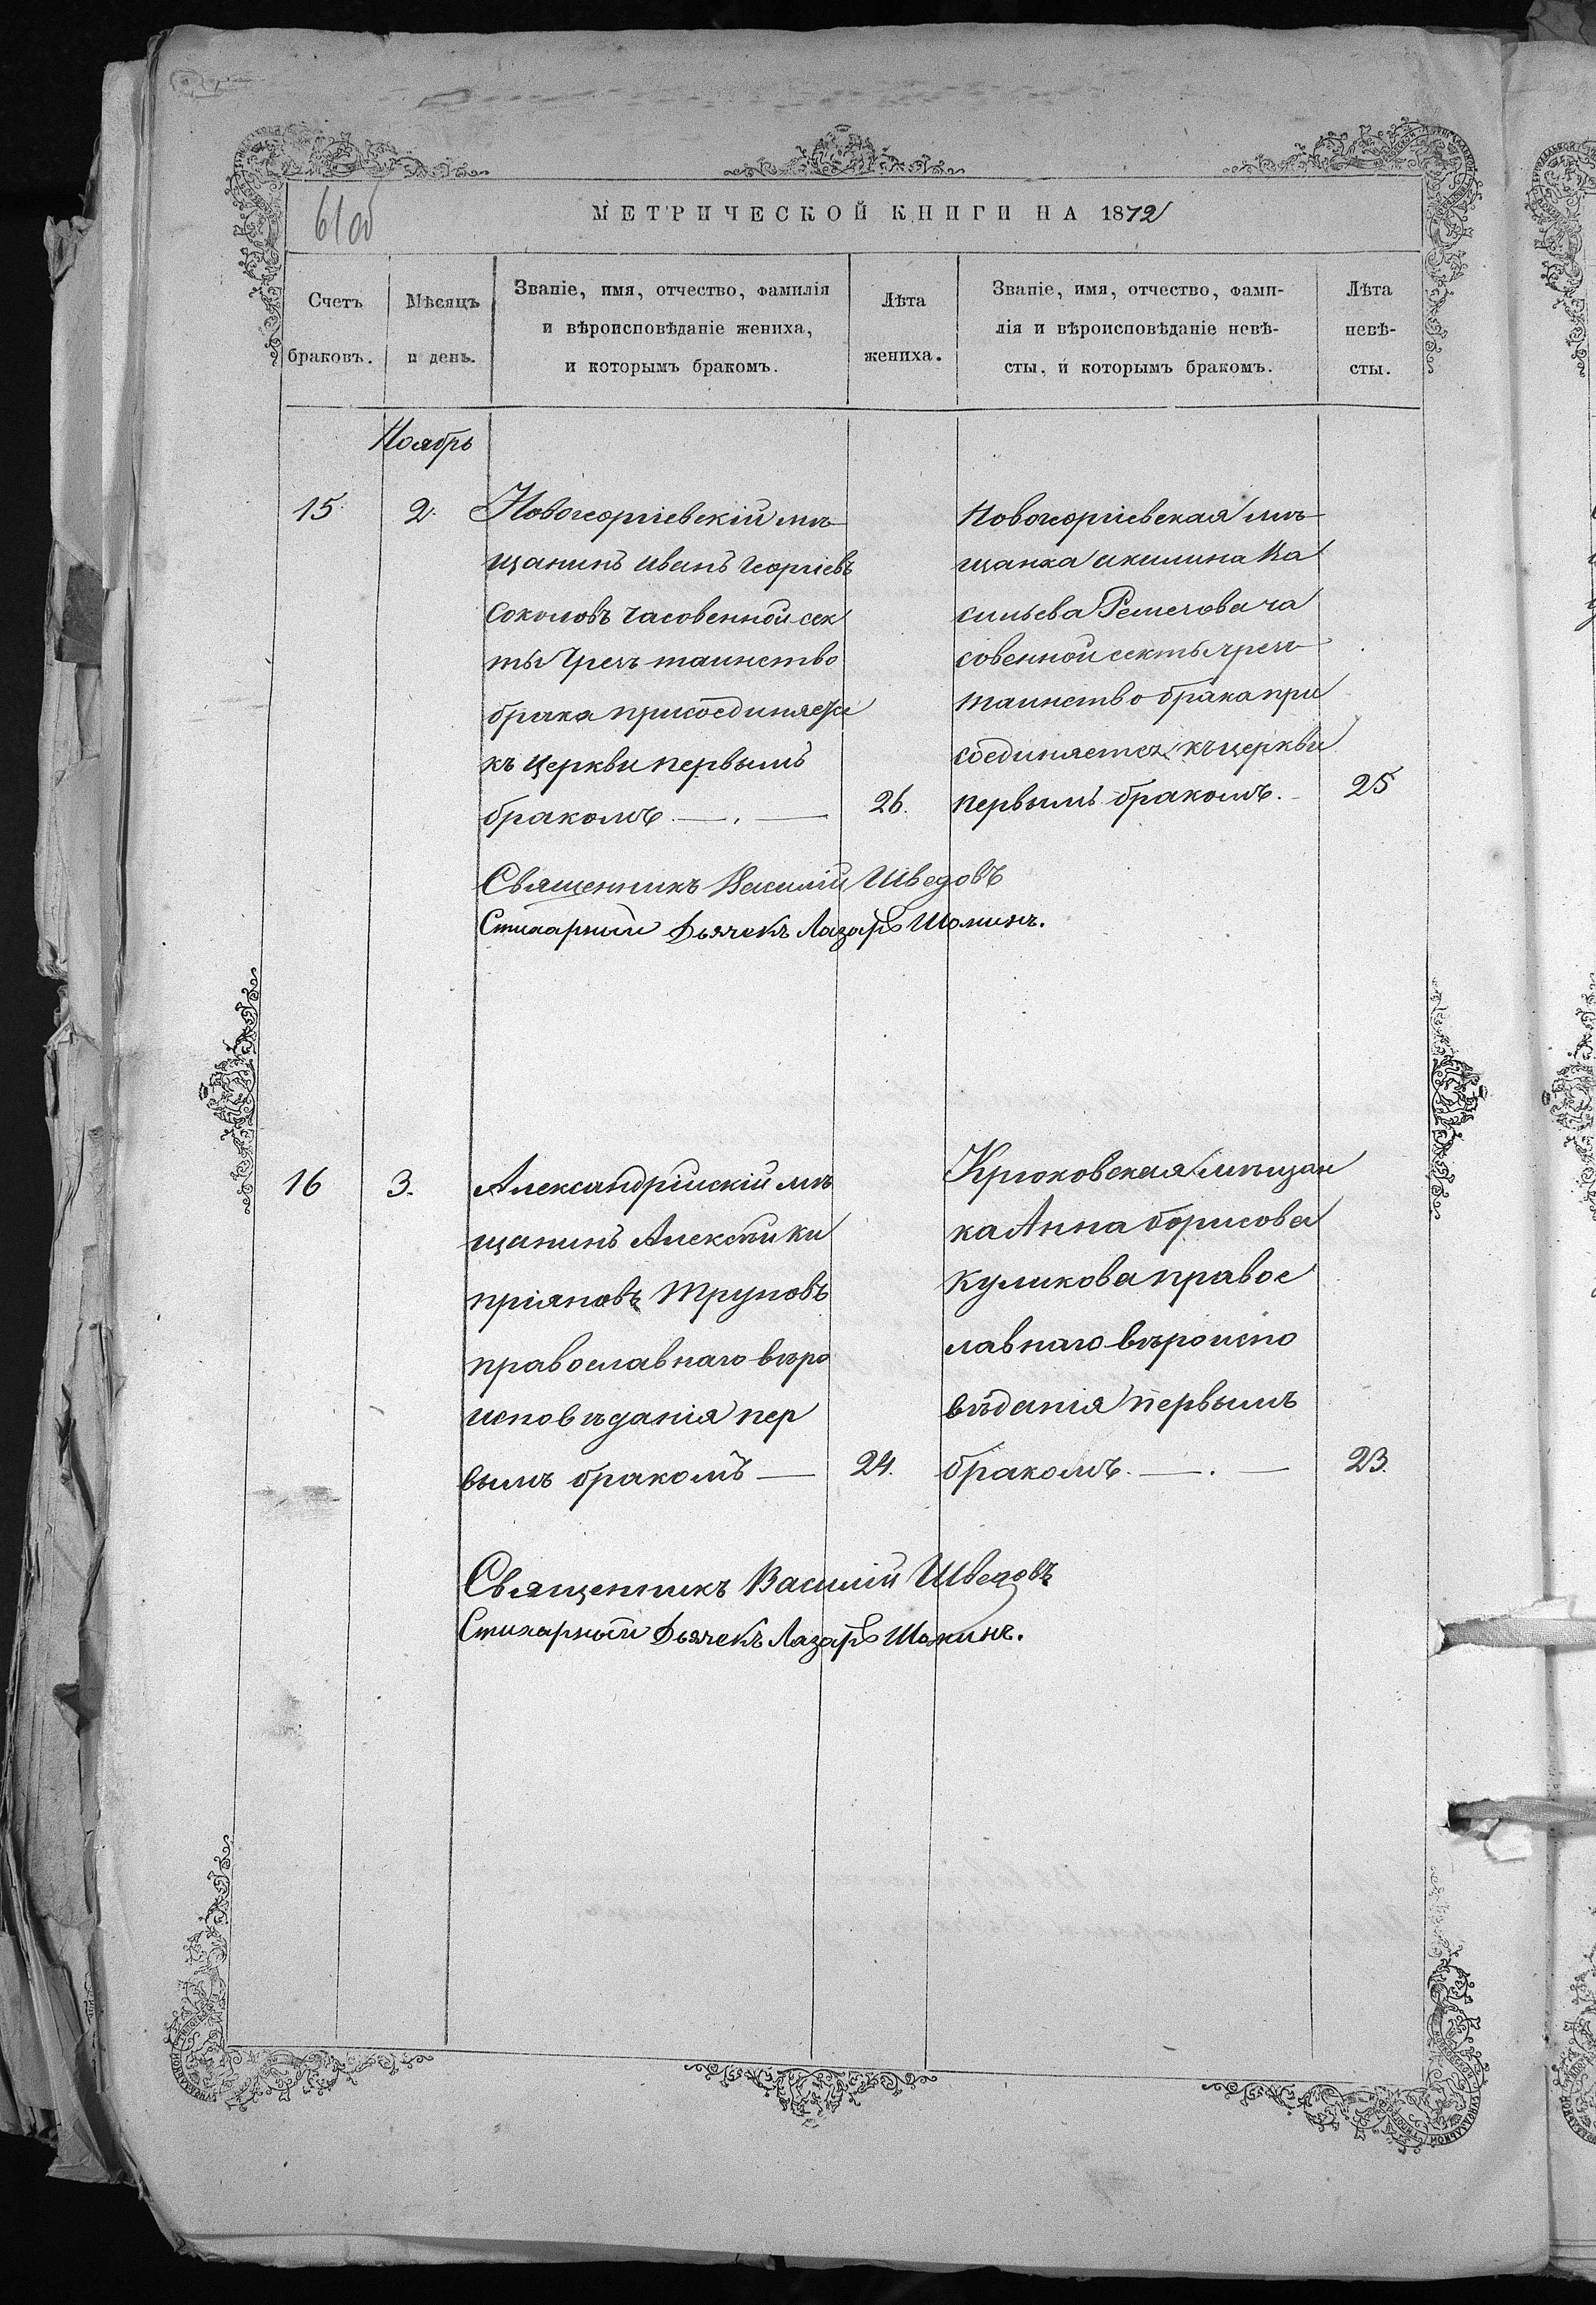 61об
МЕТРИЧЕСКОЙ КНИГИ НА 1872
Счетъ
браковъ.
Мѣсяцъ
и день.
Званіе, имя, отчество, фамилія
и вѣроисповѣданіе жениха,
и которымъ бракомъ.
Лѣта
жениха.
Званіе, имя, отчество, фами-
лія и вѣроисповѣданіе невѣ-
сты, и которымъ бракомъ.
Лѣта
невѣ-
сты.
Ноябрь
15
2.
Новогеоргіевскій мѣ
щанинъ Иванъ Георгіевъ
Соколовъ часовенной сек
ты Чрезъ таинство
брака присоединяется
къ церкви первымъ
бракомъ.
26.
Новогеоргіевская мѣ
щанка Акилина Ва
сильева ча
совенной секты чрезъ
таинство брака при
соединяется къ церкви
первымъ бракомъ.
25
Священникъ Василій Шведовъ
Стихарный Дьячекъ Лазарь Шолинъ.
16
3.
Александрійскій мѣ
щанинъ Алексѣй Ки
пріяновъ Труновъ
православнаго вѣро
исповѣданія пер
вымъ бракомъ
24.
Крюковская мѣщан
ка Анна Борисова
Куликова правос
лавнаго вѣроиспо
вѣданія первымъ
бракомъ.
23.
Священникъ Василій Шведовъ
Стихарный Дьячекъ Лазарь Шолинъ.